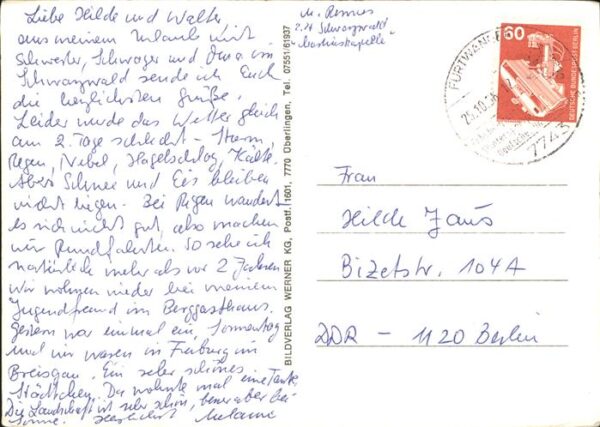 Liebe Hilde und Walter
aus meinem Urlaub mit
Schwester, Schwager und Oma im
Schwarzwald sende ich Euch
die herzlichsten Grüße.
Leider wurde das Wetter gleich
am 2. Tage schlecht – Sturm,
Regen, Nebel, Hagelschlag, Kälte.
Aber Schnee und Eis bleiben
nicht liegen. Bei Regen wandert
es sich nicht gut, also machen
wir Rundfahrten. So sehe ich
natürlich mehr als vor 2 Jahren
Wir wohnen wieder bei meinem
Jugendfreund im Berggasthaus.
Gestern war einmal ein Sonnentag
und wir waren in Freiburg im
Breisgau. Ein sehr schönes
Städtchen. Da wohnte mal eine Tante
Die Landschaft ist sehr schön, besser aber bei
Sonne. Herzlichst
BILDVERLAG WERNER KG, Postf. 1601, 7770 Überlingen, Tel. 07551/61937
z.Zt. Schwarzwald
FURTWANGEN
7743
60
DEUTSCHE BUNDESPOST BERLIN
Frau
Hilde Jaus
Bizetstr. 104A
DDR – 1120 Berlin